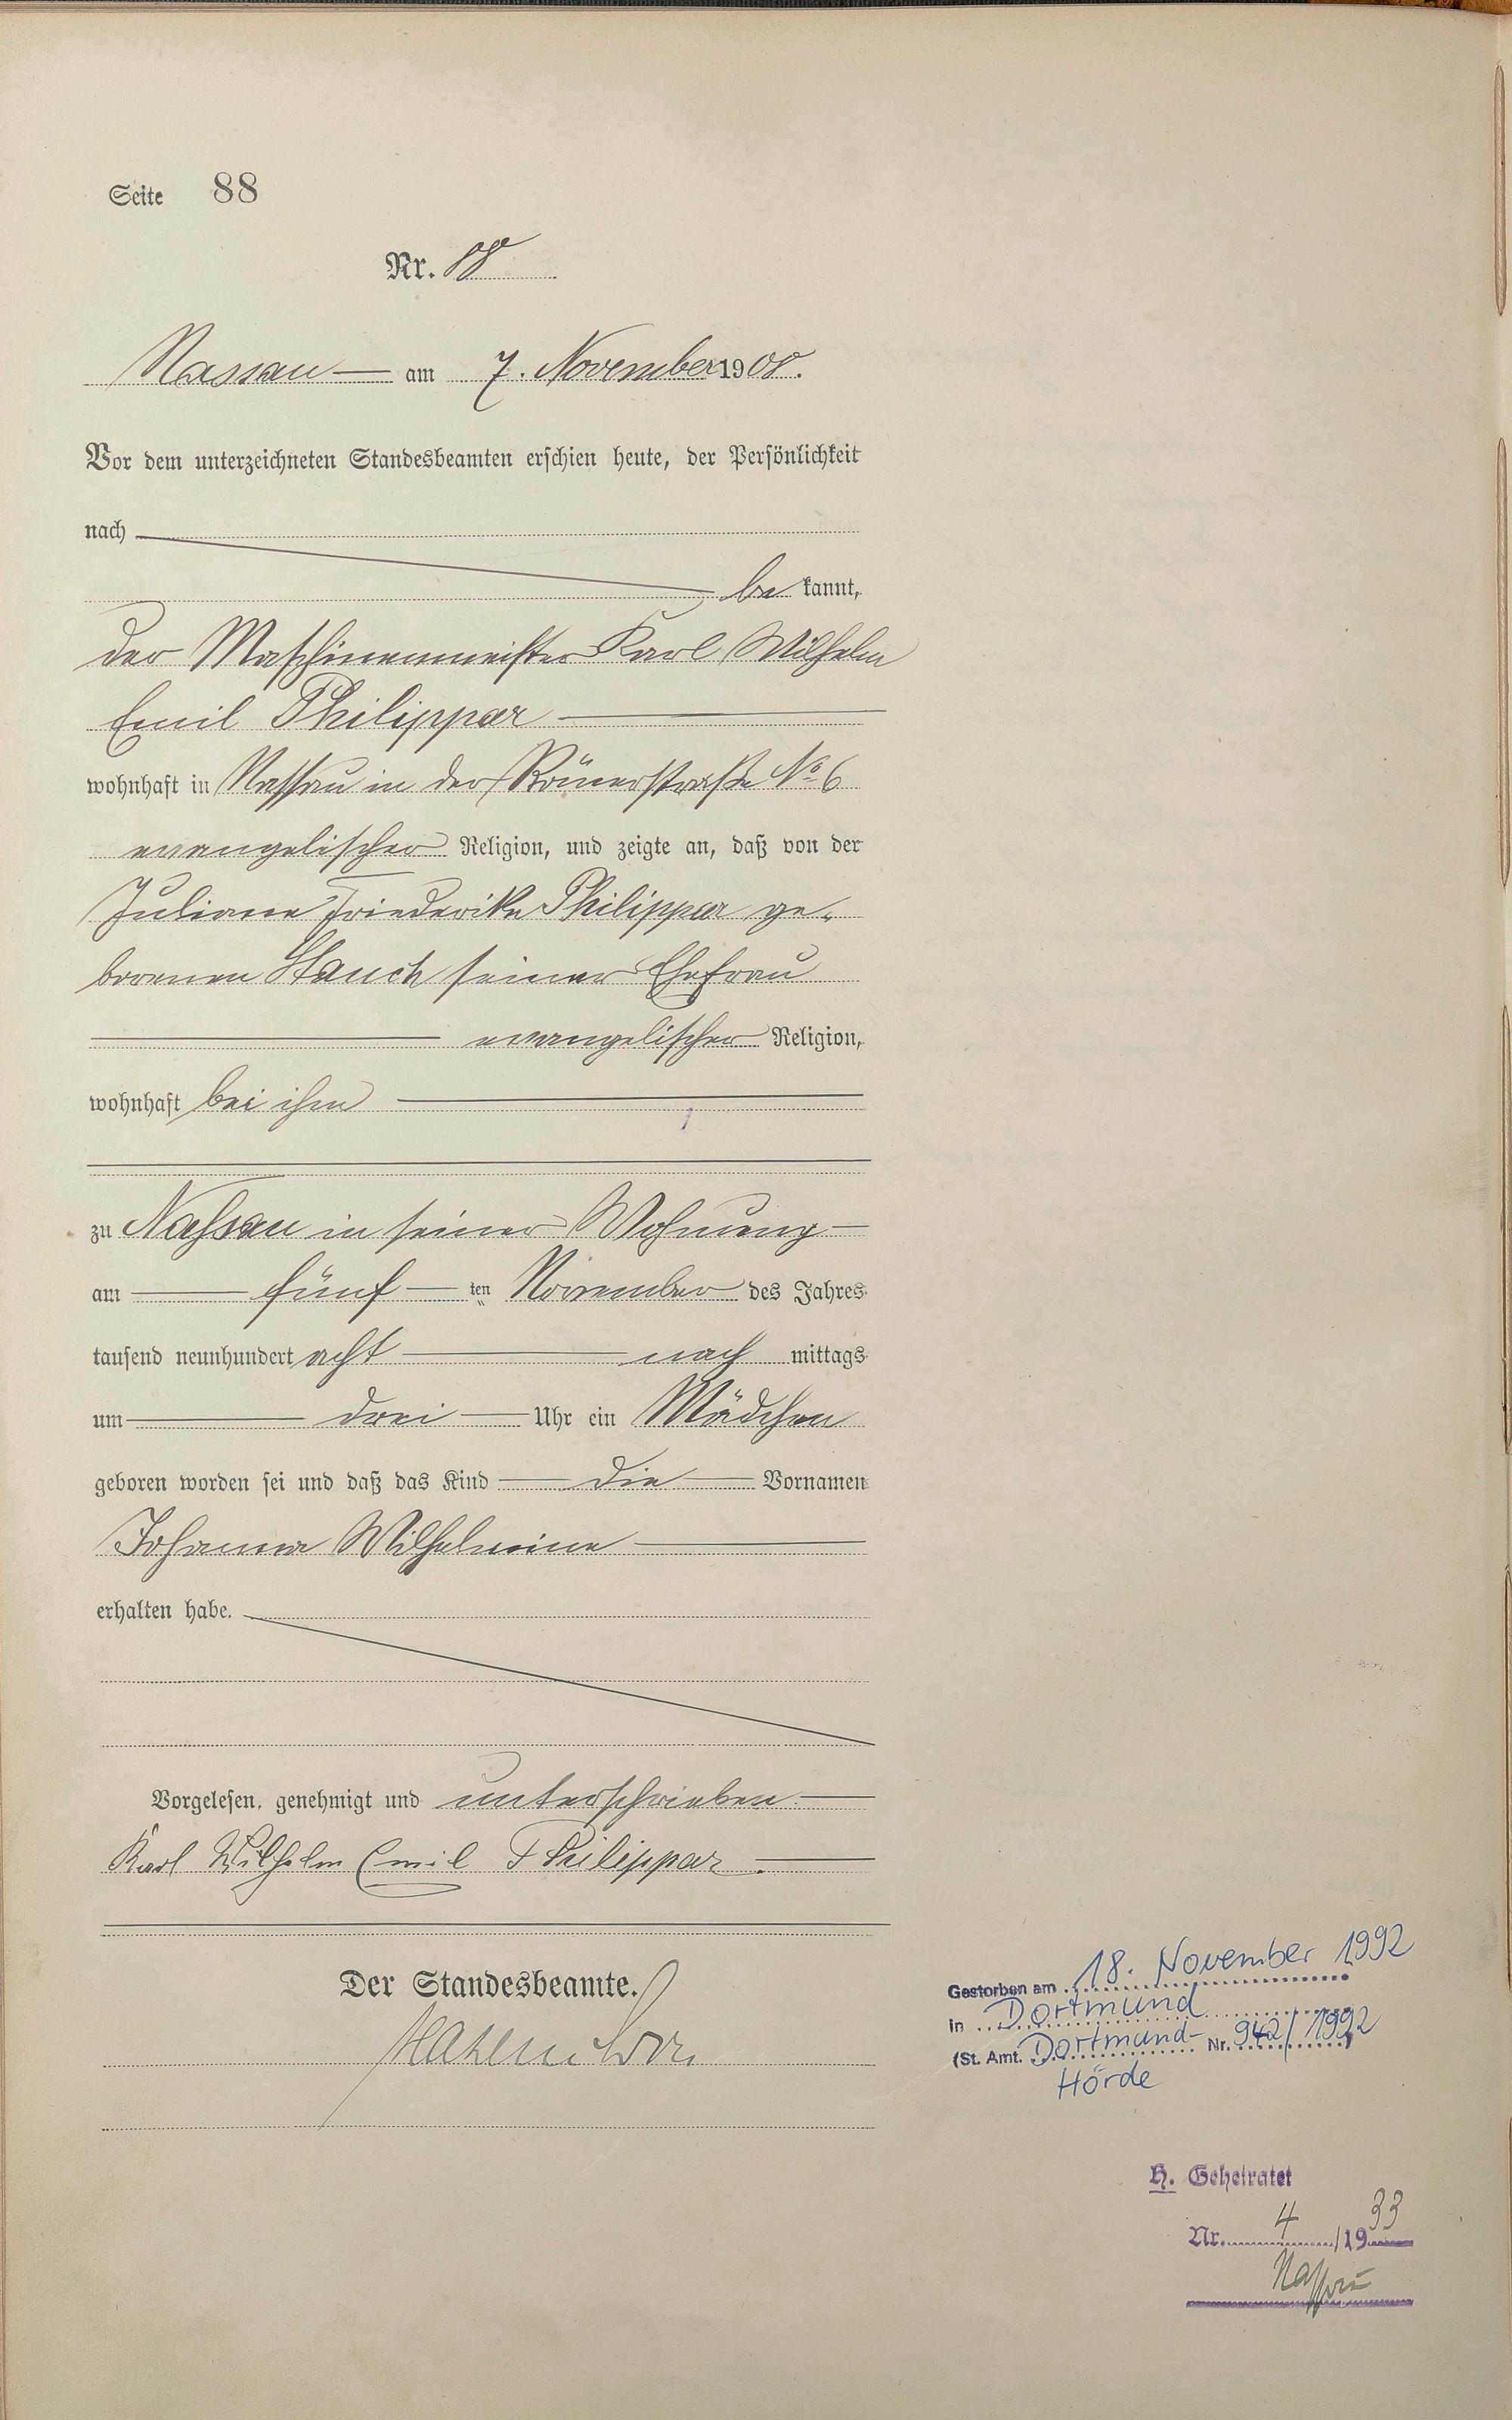 Seite 88
Nr. 88
Nassau am 7. November 1908.
Vor dem unterzeichneten Standesbeamten erschien heute, der Persönlichkeit
nach
be kannt,
der Maschinenmeister Karl Wilhelm
Emil Philippar
wohnhaft in Nassau in der Römerstraße No 6
evangelischer Religion, und zeigte an, daß von der
Juliane Friederike Philippar ge-
borenen Stauch seiner Ehefrau
evangelischer Religion,
wohnhaft bei ihm
zu Nassau in seiner Wohnung
am fünf ten November des Jahres
tausend neunhundert acht nach mittags
um drei Uhr ein Mädchen
geboren worden sei und daß das Kind die Vornamen
Johanna Wilhelmine
erhalten habe.
Vorgelesen, genehmigt und unterschrieben
Karl Wilhelm Emil Philippar
Der Standesbeamte.
Gestorben am 18. November 1992
in Dortmund
(St. Amt. Dortmund- Nr. 942/1992)
Hörde
H. Geheiratet
Nr. 4 /1933
Nassau